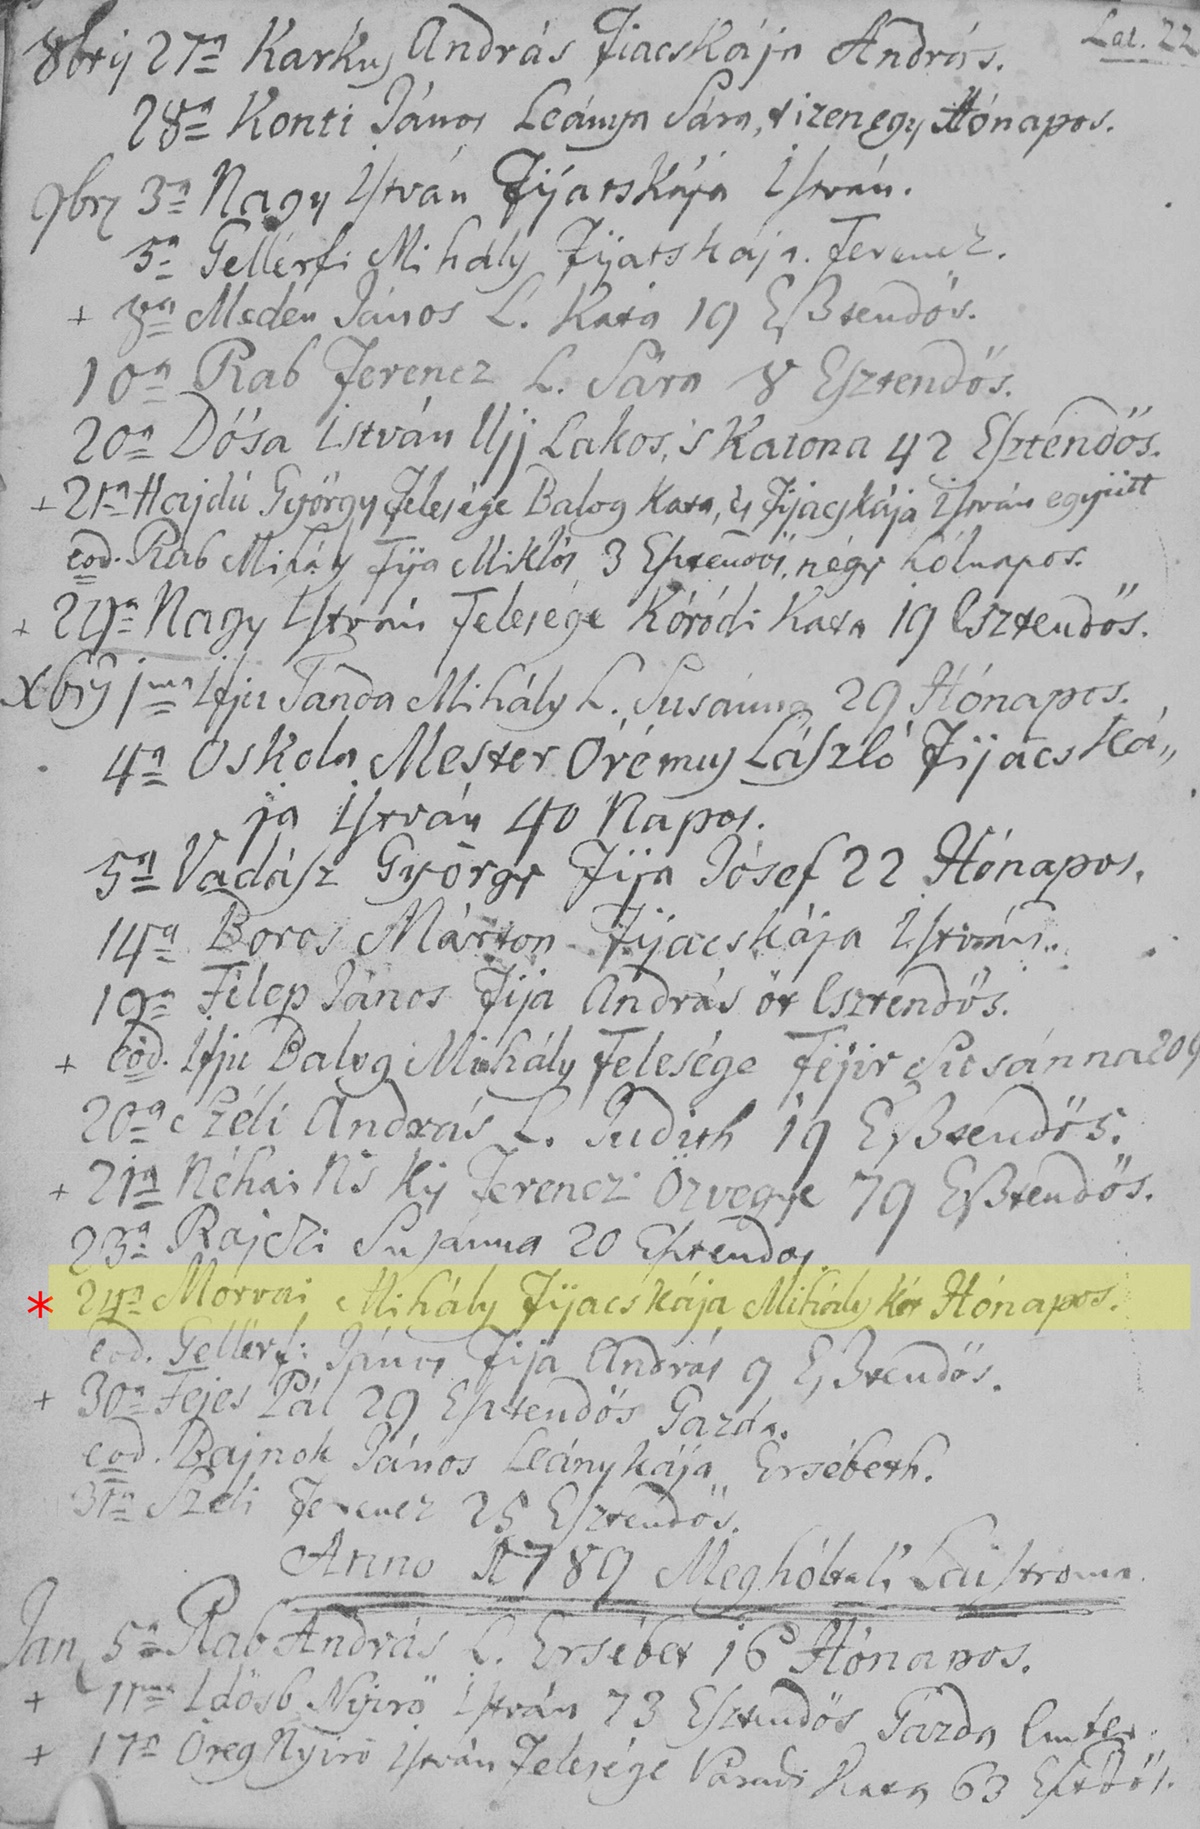 Lat. 22
8brij 27a Karkus András Fiacskája András.
28a Konti János Leánya Sára, tizenegy Hónapos.
9br 3a Nagy István Fijatskája István.
5a Gellérfi Mihály Fijatskája Ferencz.
+ 8a Meden János L. Kata 19 Eßtendős.
10a Rab Ferencz L. Sára 8 Esztendős.
20a Dósa István Ujj Lakos, 's Katona 42 Esztendős.
+ 21a Hajdú György Felesége Balog Kata, és Fijacskája István együtt
eod. Rab Mihály Fija Miklós 3 Esztendős, négy hólnapos.
+ 29a Nagy István Felesége Kóródi Kata 19 Esztendős.
Xbrij 1ma Ifju Tanda Mihály L. Susánna 29 Hónapos.
4a Oskola Mester Orémus László Fijacská„
ja István 40 Napos.
5a Vadász György Fija Jósef 22 Hónapos.
14a Boros Márton Fijacskája István.
19a Filep János Fija András öt Esztendős.
+ eod. Ifju Balog Mihály Felesége Fejir Susánna 20
20a Széli András L. Judith 19 Eßtendős.
+ 21a Néhai Ns Kis Ferencz Özvegye 79 Eßtendős.
23a Rajczi Susánna 20 Esztendős.
* 24a Morvai Mihály Fijacskája Mihály két Hónapos.
eod. Gellérfi János Fija András 9 Eßtendős.
+ 30a Fejes Pál 29 Esztendős Gazda.
eod. Bajnok János Leánykája Ersébeth.
31a Széli Ferencz 25 Esztendős.
Anno 1789 Meghóltak Lajstroma
Jan 5a Rab András L. Ersébet 16 Hónapos.
+ 11ma Idősb Nyirő István 73 Esztendős Gazda Ember.
+ 17a Öreg Nyirő István Felesége Váradi Kata 63 Esztdős.